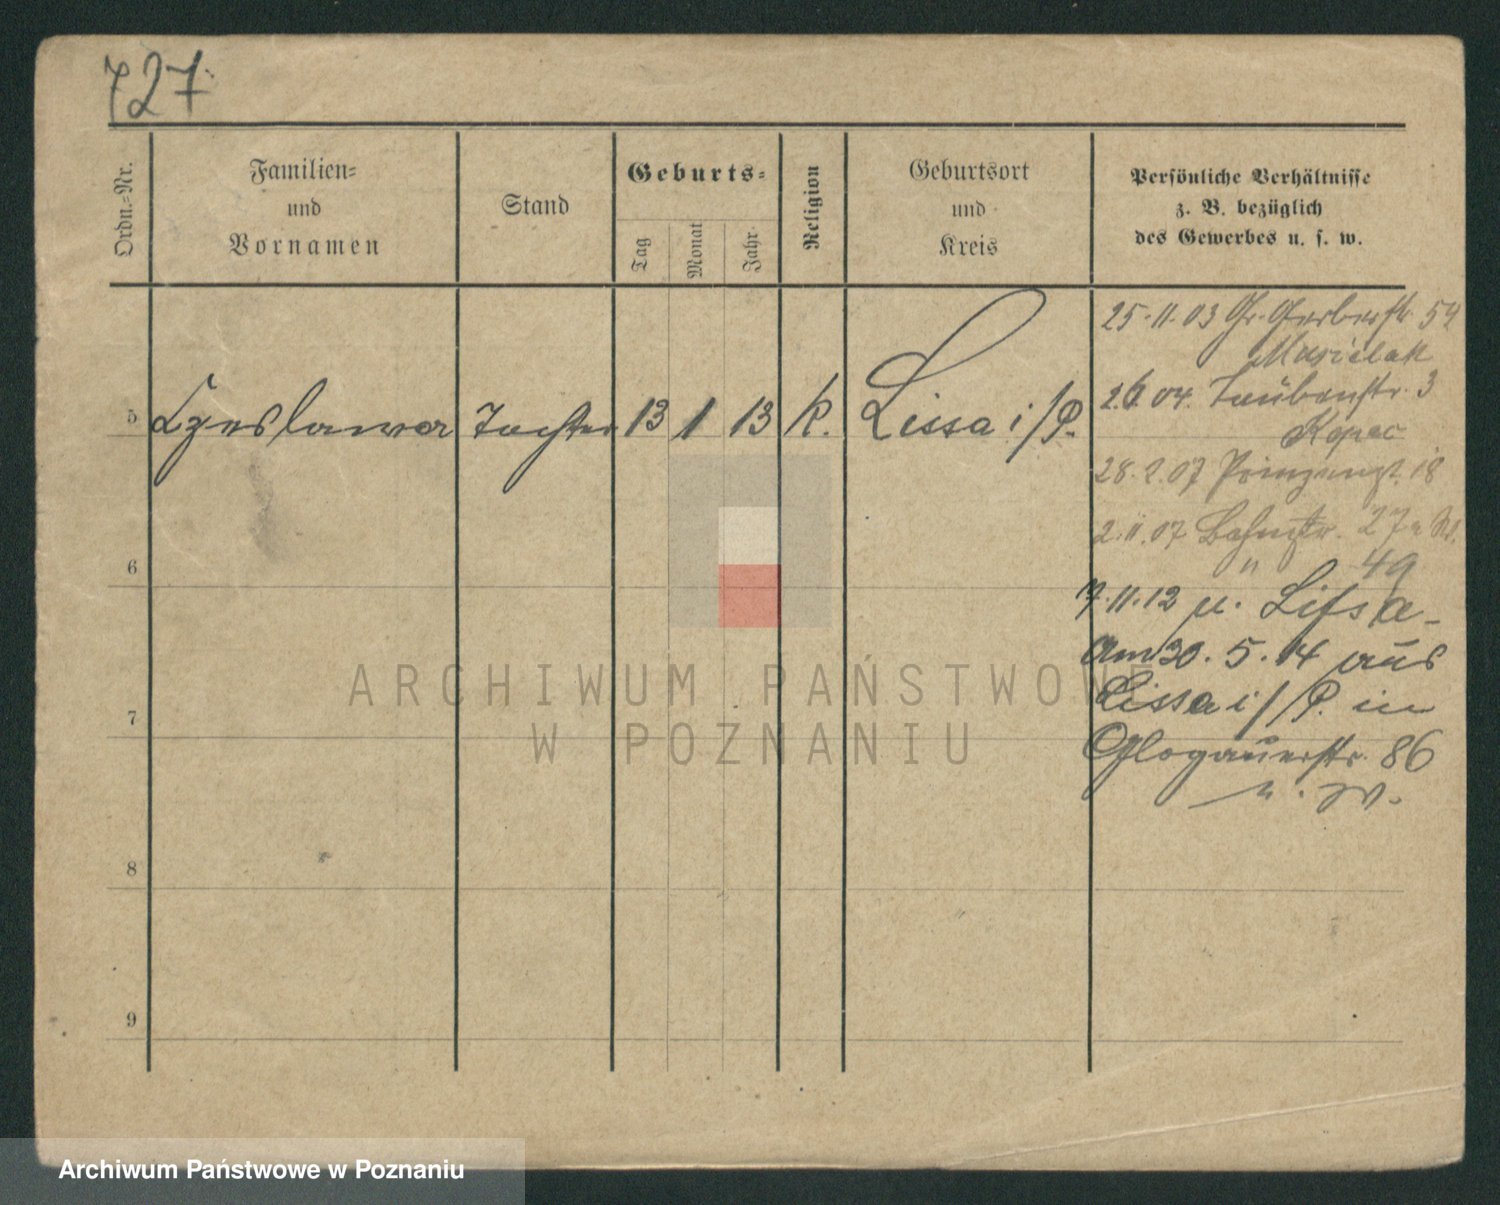 727.
Ordn.-Nr.
Familien-
und
Vornamen
Stand
Geburts-
Tag
Monat
Jahr
Religion
Geburtsort
und
Kreis
Persönliche Verhältnisse
z. B. bezüglich
des Gewerbes u. s. w.
5
Czeslawa Tochter 13 1 13 k. Lissa i/P.
6
7
8
9
25.11.03 Gr. Gerberstr. 54
Musielak
04. Taubenstr. 3
Kopec
28.2.07 18
2.11.07 27
" 49
7.11.12 n. Lissa
Am 30.5.14 aus
Lissa i/P. in
Glogauerstr. 86
ARCHIWUM PAŃSTWOWE
W POZNANIU
Archiwum Państwowe w Poznaniu